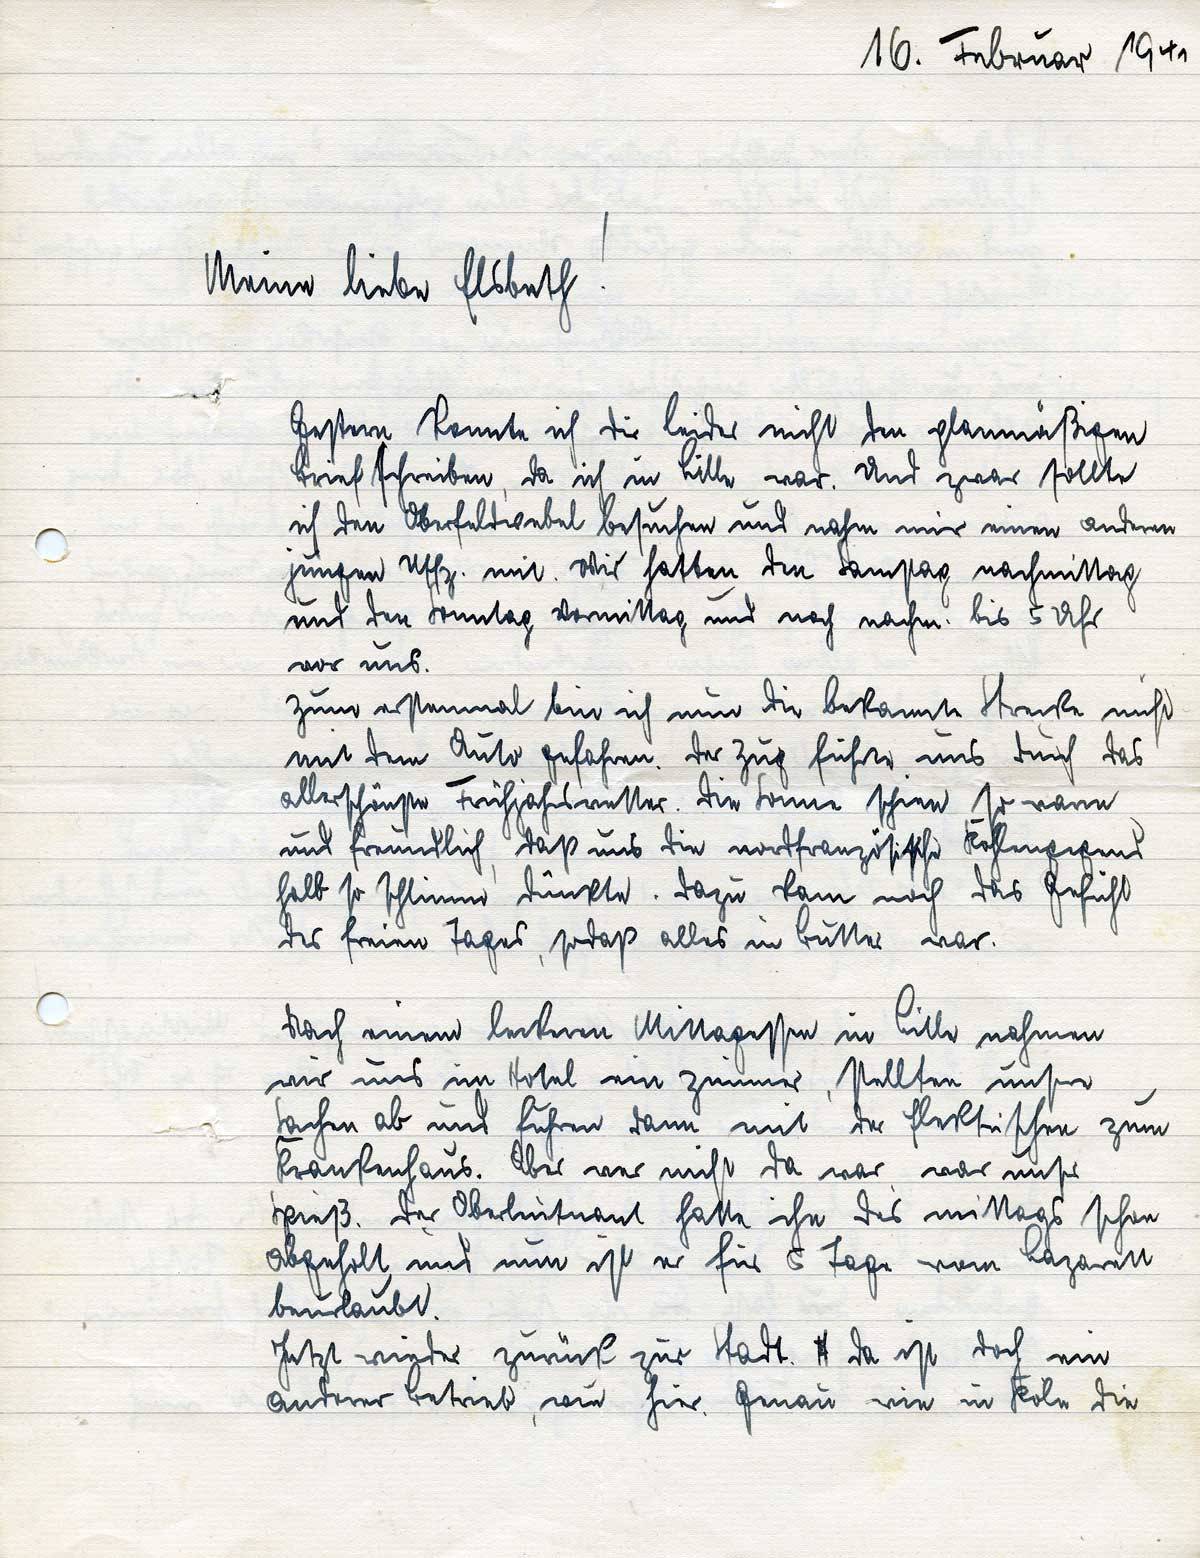 16. Februar 1941
Meine liebe Elsbeth!
Gestern konnte ich dir leider nicht den planmäßigen
Brief schreiben, da ich in Lille war. Und zwar sollte
ich den Oberfeldwebel besuchen und nahm mir einen anderen
jungen Uffz. mit. Wir hatten den Samstag nachmittag
und den Sonntag vormittag und noch nachm. bis 5 Uhr
vor uns.
Zum erstenmal bin ich nun die bekannte Strecke nicht
mit dem Auto gefahren. Der Zug führte uns durch das
allerschönste Frühjahrswetter. Die Sonne schien so warm
und freundlich, daß uns die nordfranzösische Kohlengegend
halb so schlimm dünkte. Dazu kam noch das Gefühl
des freien Tages, sodaß alles in Butter war.
Nach einem leckeren Mittagessen in Lille nahmen
wir uns im Hotel ein Zimmer, stellten unsere
Sachen ab und fuhren dann mit der Elektrischen zum
Krankenhaus. Aber wer nicht da war, war unser
Spieß. Der Oberleutnant hatte ihn des mittags schon
abgeholt und nun ist er für 5 Tage vom Lazarett
beurlaubt.
Jetzt wieder zurück zur Stadt. Da ist doch ein
anderer Betrieb, wie hier. Genau wie in Köln die